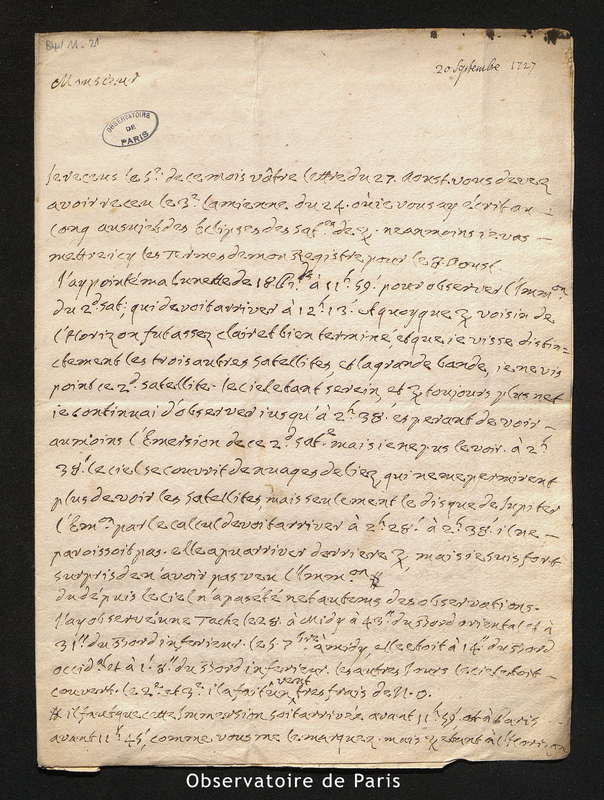 B4/11-21
20 Septembre 1727
Monsieur
OBSERVATOIRE
DE
PARIS
Je receus le 5e. de ce mois vôtre lettre du 27. Aoust. vous devez
avoir receu le 3e. la mienne du 24. où ie vous ay écrit au
long au sujet des Eclipses des satem de ♃. neanmoins ie vas
mettre icy les Termes de mon Registre pour le 8. Aoust.
J'ay pointé ma lunette de 18. pds à 11h 59'. pour observer l'Immon
du 2d sat; qui devoit arriver à 12h 13'. Et quoyque ♃ voisin de
l'Horizon fut assez clair et bien terminé et que ie visse distin=
ctement les trois autres satellites, et la grande bande, ie ne vis
point ce 2d. satellite. le ciel etant serein et ♃ toujours plus net
ie continuai d'observer iusqu'à 2h 38'. esperant de voir
au moins l'Emersion de ce 2d sate mais ie ne pus le voir. à 2h
38'. le ciel se couvrit de nuages deliez, qui ne me permirent
plus de voir les satellites, mais seulement le disque de Jupiter
l'Emon par le calcul devoit arriver à 2h 28'. à 2h 38'. il ne
paroissoit pas. elle a pu arriver derriere ♃, mais ie suis fort
surpris de n'avoir pas veu l'Immon #
du depuis le ciel n'a pas eté net au tems des observations.
J'ay observé une Tache le 28. à Midy à 43" du Bord oriental et à
31" du Bord inferieur. le 5. 7bre à midy elle etoit à 14" du Bord
occidal et à 1'. 8" du Bord inferieur. les autres Jours le ciel etoit
couvert. le 2e. et 3e. il a fait un vent tres frais de N. O.
# il faut que cette Immersion soit arrivée avant 11h 59' et à Paris
avant 11h 45', comme vous me le marquez. mais ♃ etant à l'Horizon
Observatoire de Paris